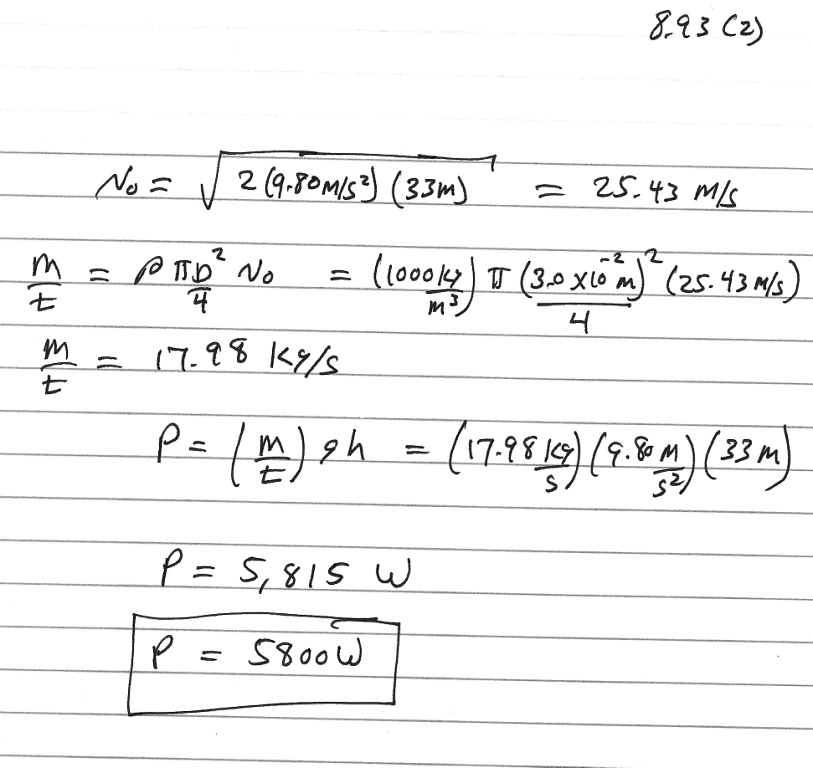 8.93 (2)
v₀ = √(2 (9.80 m/s²) (33m)) = 25.43 m/s
m/t = ρ πD²/4 v₀ = (1000 kg/m³) π (3.0 x10⁻² m)²/4 (25.43 m/s)
m/t = 17.98 kg/s
P = (m/t) gh = (17.98 kg/s) (9.80 m/s²) (33 m)
P = 5,815 W
P = 5800 W